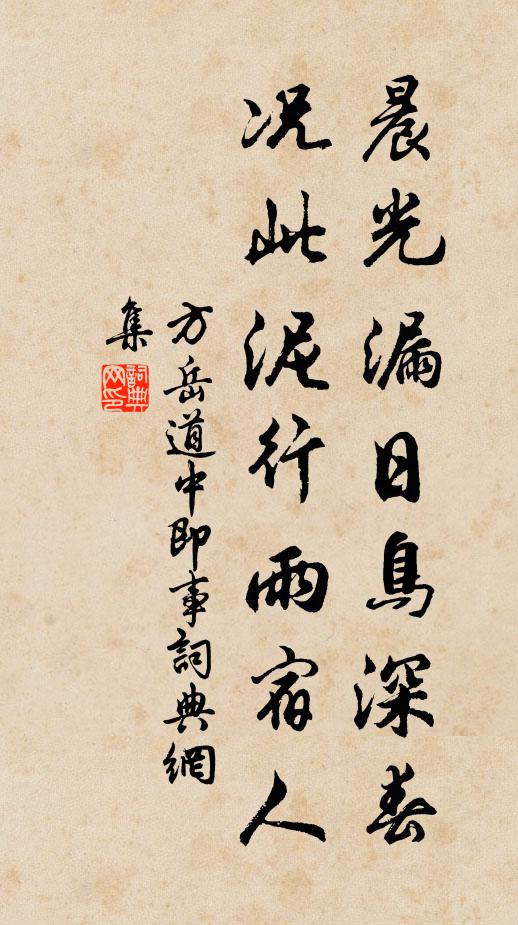 晨光漏日鳥深春
况此泥行雨宿人
方岳道中即事詞典網
集
詞典
网印